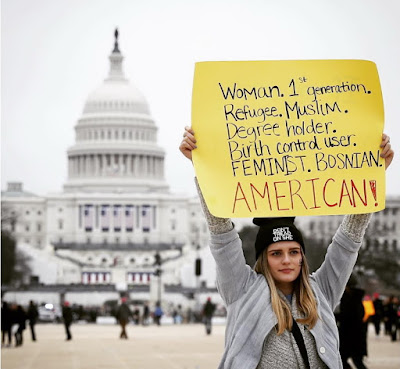 Woman. 1st generation.
Refugee. Muslim.
Degree holder.
Birth control user.
FEMINIST. BOSNIAN.
AMERICAN!
DON'T
TREAD
ON ME